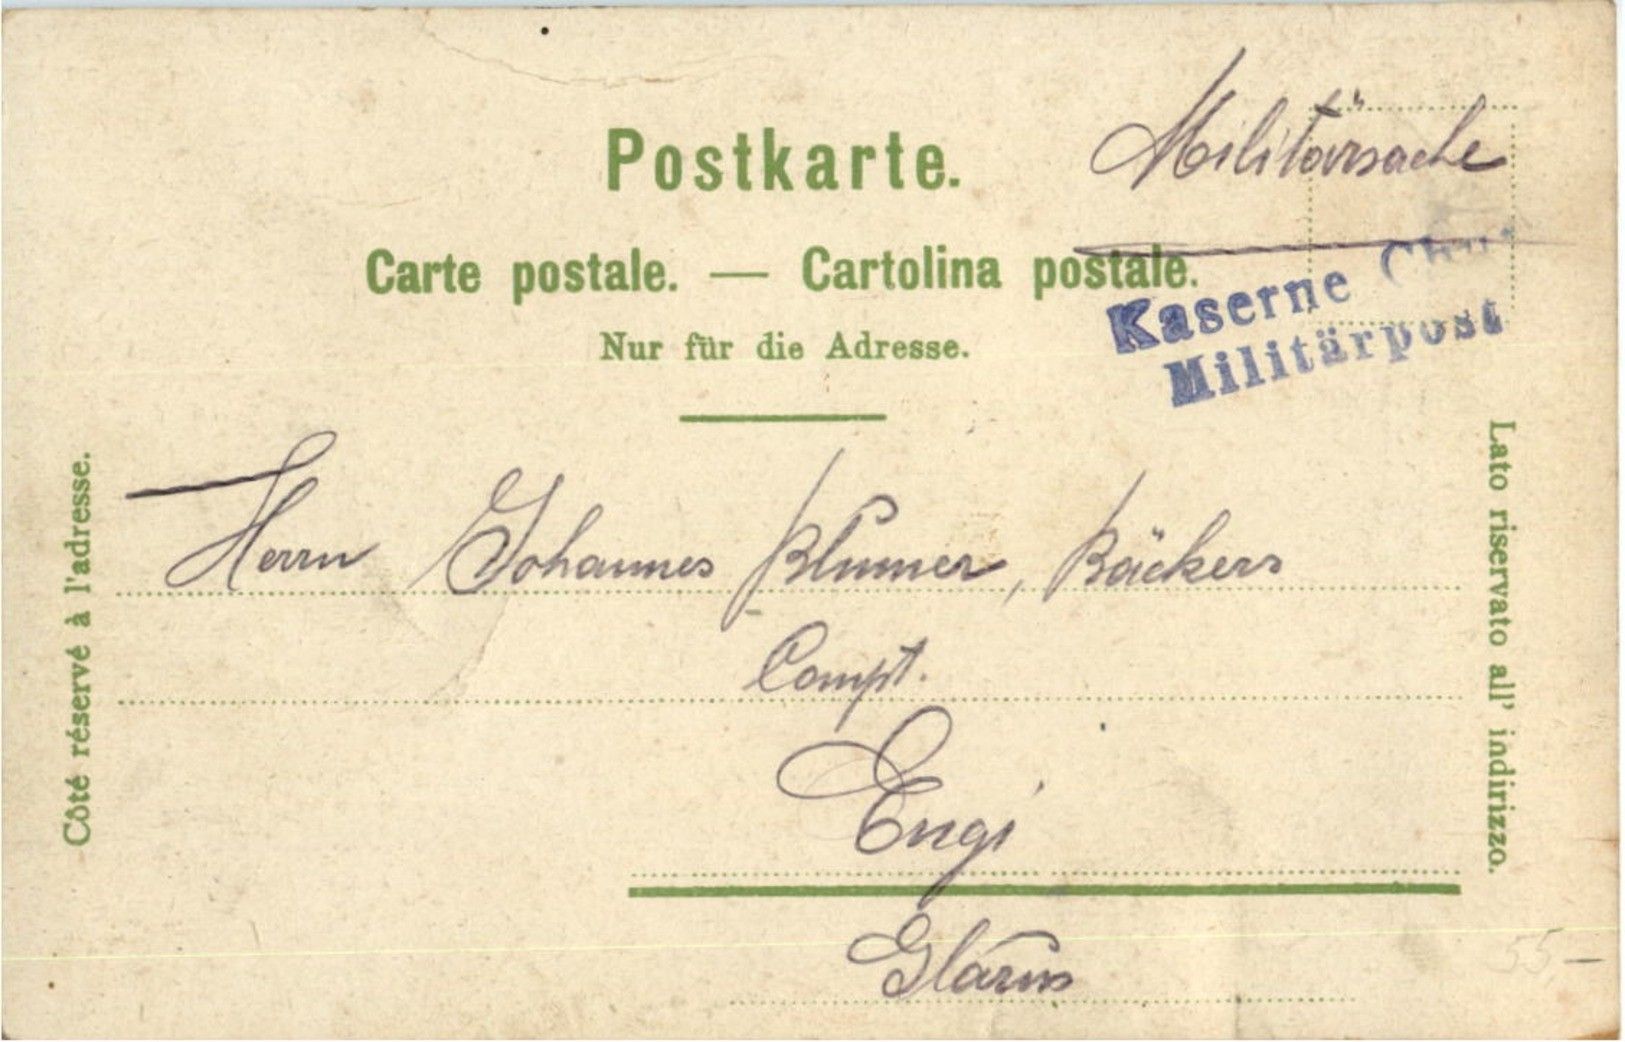 Militärsache
Postkarte.
Carte postale. — Cartolina postale.
Kaserne Chur
Militärpost
Nur für die Adresse.
Côté réservé à l'adresse.
Lato riservato all' indirizzo.
Herrn Johannes Blumer, Bäckers
Compt.
Engi
Glarus
55.–